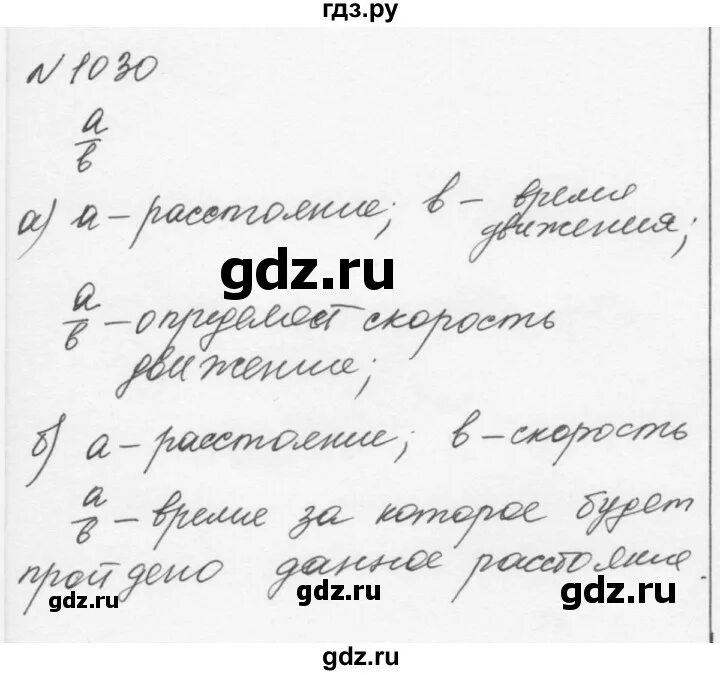 гдз.ру
N 1030
a/в
а) а – расстояние; в – время движения;
gdz.ru
a/в – определяет скорость
движение;
б) а – расстояние; в – скорость
a/в – время за которое будет
пройдено данное расстояние.
gdz.ru gdz.ru gdz.ru
gdz.ru